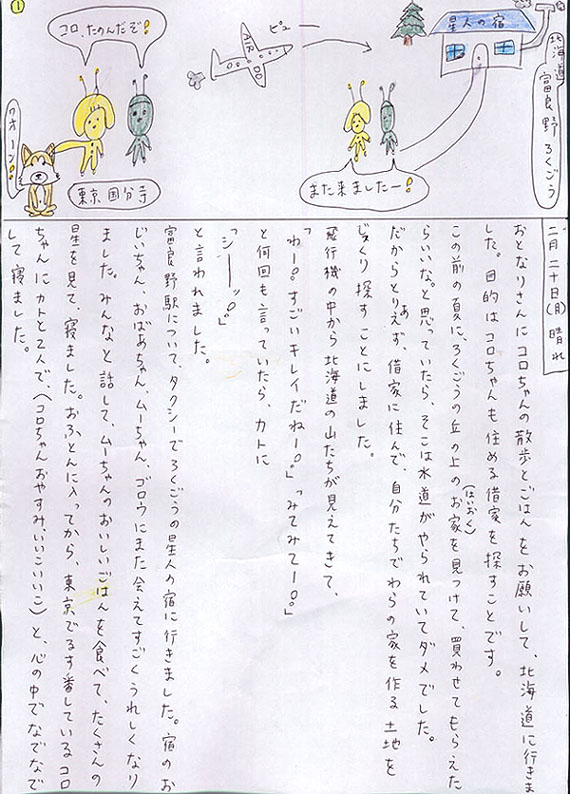 ①
コロ、たのんだぞ!
ワオーン!
東京国分寺
AIR DO
ピュー
また来ましたー!
星人の宿
北海道富良野ろくごう
二月二十日(月) 晴れ
おとなりさんにコロちゃんの散歩とごはんをお願いして、北海道に行きま
した。目的はコロちゃんも住める借家を探すことです。
この前の夏に、ろくごうの丘の上のお家(はいおく)を見つけて、買わせてもらえた
らいいな。と思っていたら、そこは水道がやられていてダメでした。
だからとりあえず、借家に住んで、自分たちでわらの家を作る土地を
じっくり探すことにしました。
飛行機の中から北海道の山たちが見えてきて、
「わー!。すごいキレイだねー!。」「みてみてー!。」
と何回も言っていたら、カトに
「シーッ!。」
と言われました。
富良野駅について、タクシーでろくごうの星人の宿に行きました。宿のお
じいちゃん、おばあちゃん、ムーちゃん、ゴロウにまた会えてすごくうれしくなり
ました。みんなと話して、ムーちゃんのおいしいごはんを食べて、たくさんの
星を見て、寝ました。おふとんに入ってから、東京でるす番しているコロ
ちゃんにカトと2人で、(コロちゃんおやすみ、いいこいいこ)と、心の中でなでなで
して寝ました。